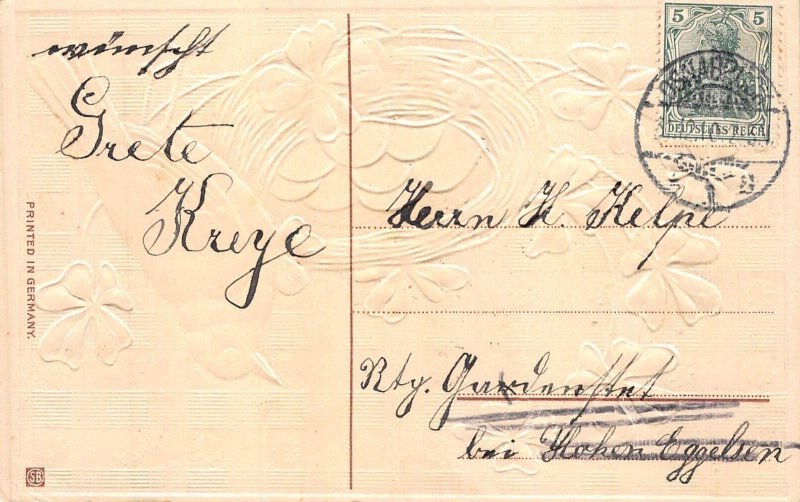 wünscht
Grete
Kreye
PRINTED IN GERMANY.
SB
5 5
DEUTSCHES REICH
Herrn H. Kelpe
Rtg. Gardenstet
bei Hohen Eggelsen